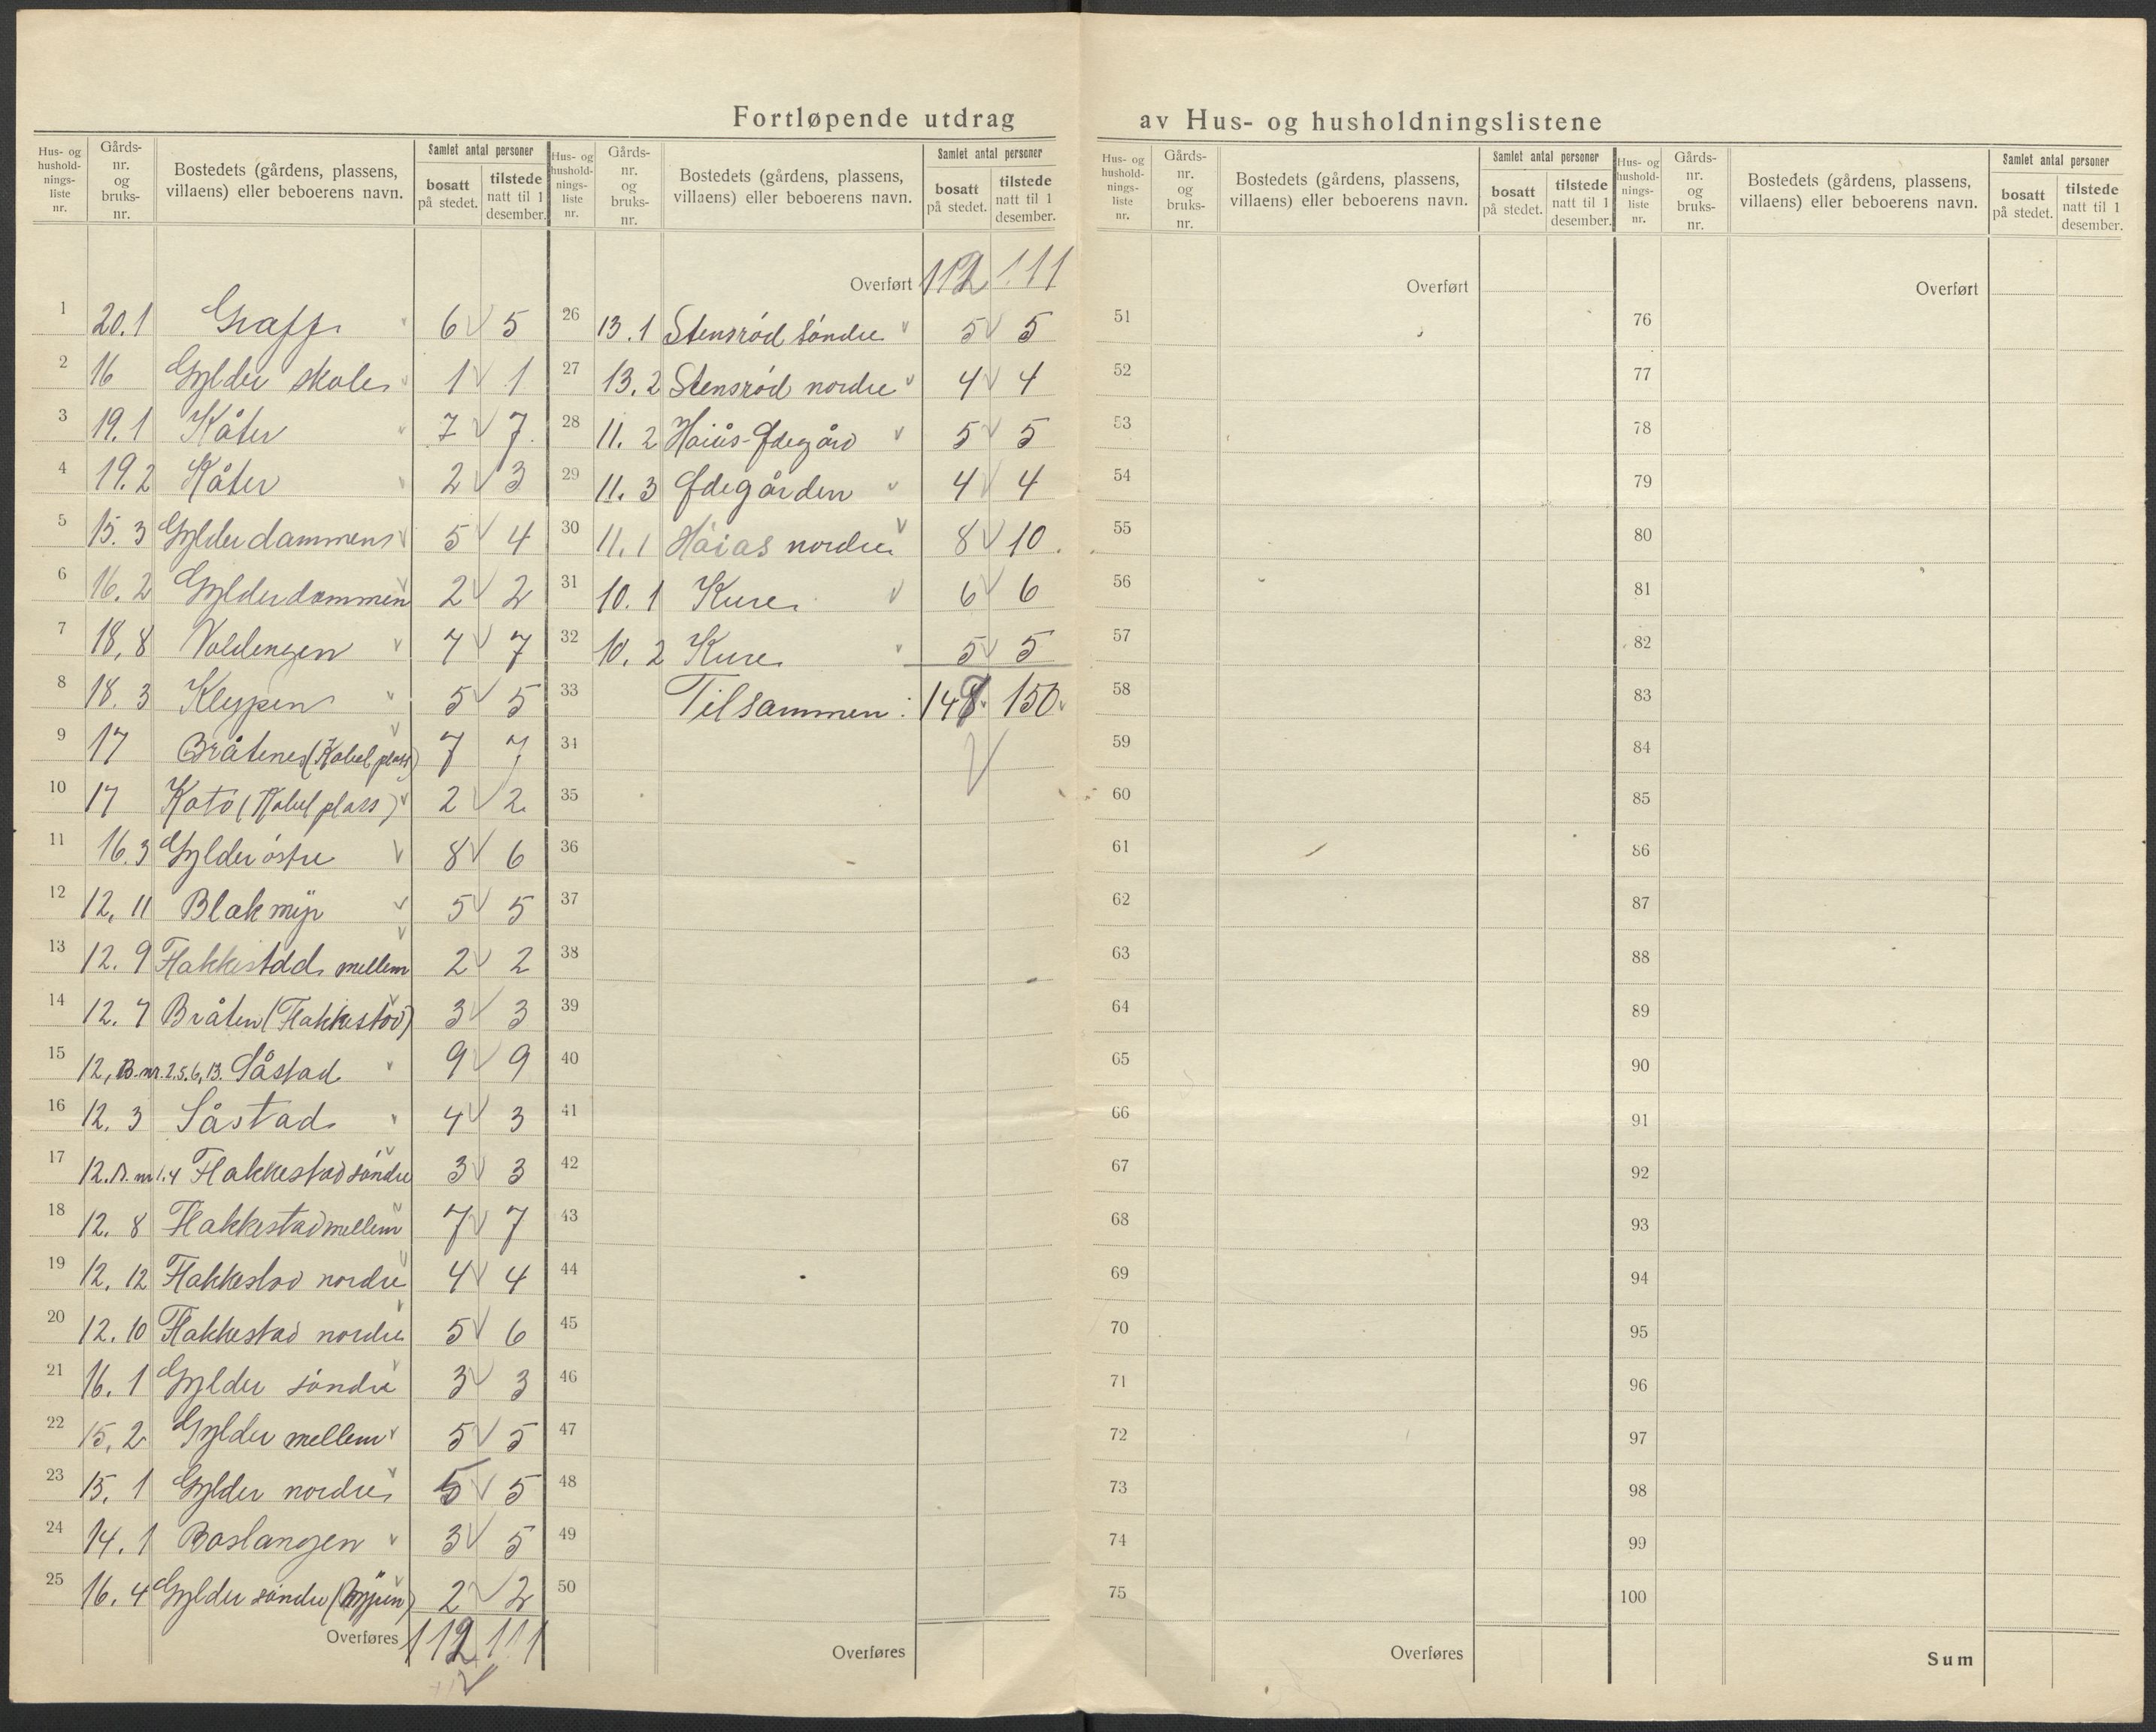 Fortløpende utdrag av Hus- og husholdningslistene
Hus- og hushold-nings-liste nr. Gårds-nr. og bruks-nr. Bostedets (gårdens, plassens, villaens) eller beboerens navn. Samlet antal personer bosatt på stedet. tilstede natt til 1 desember.
1 20.1 Graff 6 5
2 16 Gylder skole 1 1
3 19.1 Kåter 7 7
4 19.2 Kåter 2 3
5 15.3 Gylderdammen 5 4
6 16.2 Gylderdammen 2 2
7 18,8 Voldengen 7 7
8 18.3 Kleppen 5 5
9 17 Bråtene (Kabel plass) 7 7
10 17 Kato (Kabel plass) 2 2
11 16.3 Gylder østre 8 6
12 12,11 Blakmyr 5 5
13 12.9 Hakkestad mellem 2 2
14 12.7 Bråten (Hakkestad) 3 3
15 12, B.nr. 2.5.6,13. Såstad 9 9
16 12.3 Såstad 4 3
17 12.B.nr 1.4 Hakkestad søndre 3 3
18 12.8 Hakkestad mellem 7 7
19 12.12 Hakkestad nordre 4 4
20 12.10 Hakkestad nordre 5 6
21 16.1 Gylder søndre 3 3
22 15,2 Gylder mellem 5 5
23 15.1 Gylder nordre 5 5
24 14.1 Baslangen 3 5
25 16.4 Gylder søndre 2 2
Overføres 112 111
Hus- og hushold-nings-liste nr. Gårds-nr. og bruks-nr. Bostedets (gårdens, plassens, villaens) eller beboerens navn. Samlet antal personer bosatt på stedet. tilstede natt til 1 desember.
Overført 112 111
26 13.1 Stensrød søndre 5 5
27 13.2 Stensrød nordre 4 4
28 11.2 Haiås-Ødegård 5 5
29 11.3 Ødegården 4 4
30 11.1 Haiås nordre 8 10
31 10.1 Kure 6 6
32 10.2 Kure 5 5
33 Tilsammen: 149. 150.
34
35
36
37
38
39
40
41
42
43
44
45
46
47
48
49
50
Overføres
Hus- og hushold-nings-liste nr. Gårds-nr. og bruks-nr. Bostedets (gårdens, plassens, villaens) eller beboerens navn. Samlet antal personer bosatt på stedet. tilstede natt til 1 desember.
Overført
51
52
53
54
55
56
57
58
59
60
61
62
63
64
65
66
67
68
69
70
71
72
73
74
75
Overføres
Hus- og hushold-nings-liste nr. Gårds-nr. og bruks-nr. Bostedets (gårdens, plassens, villaens) eller beboerens navn. Samlet antal personer bosatt på stedet. tilstede natt til 1 desember.
Overført
76
77
78
79
80
81
82
83
84
85
86
87
88
89
90
91
92
93
94
95
96
97
98
99
100
Sum